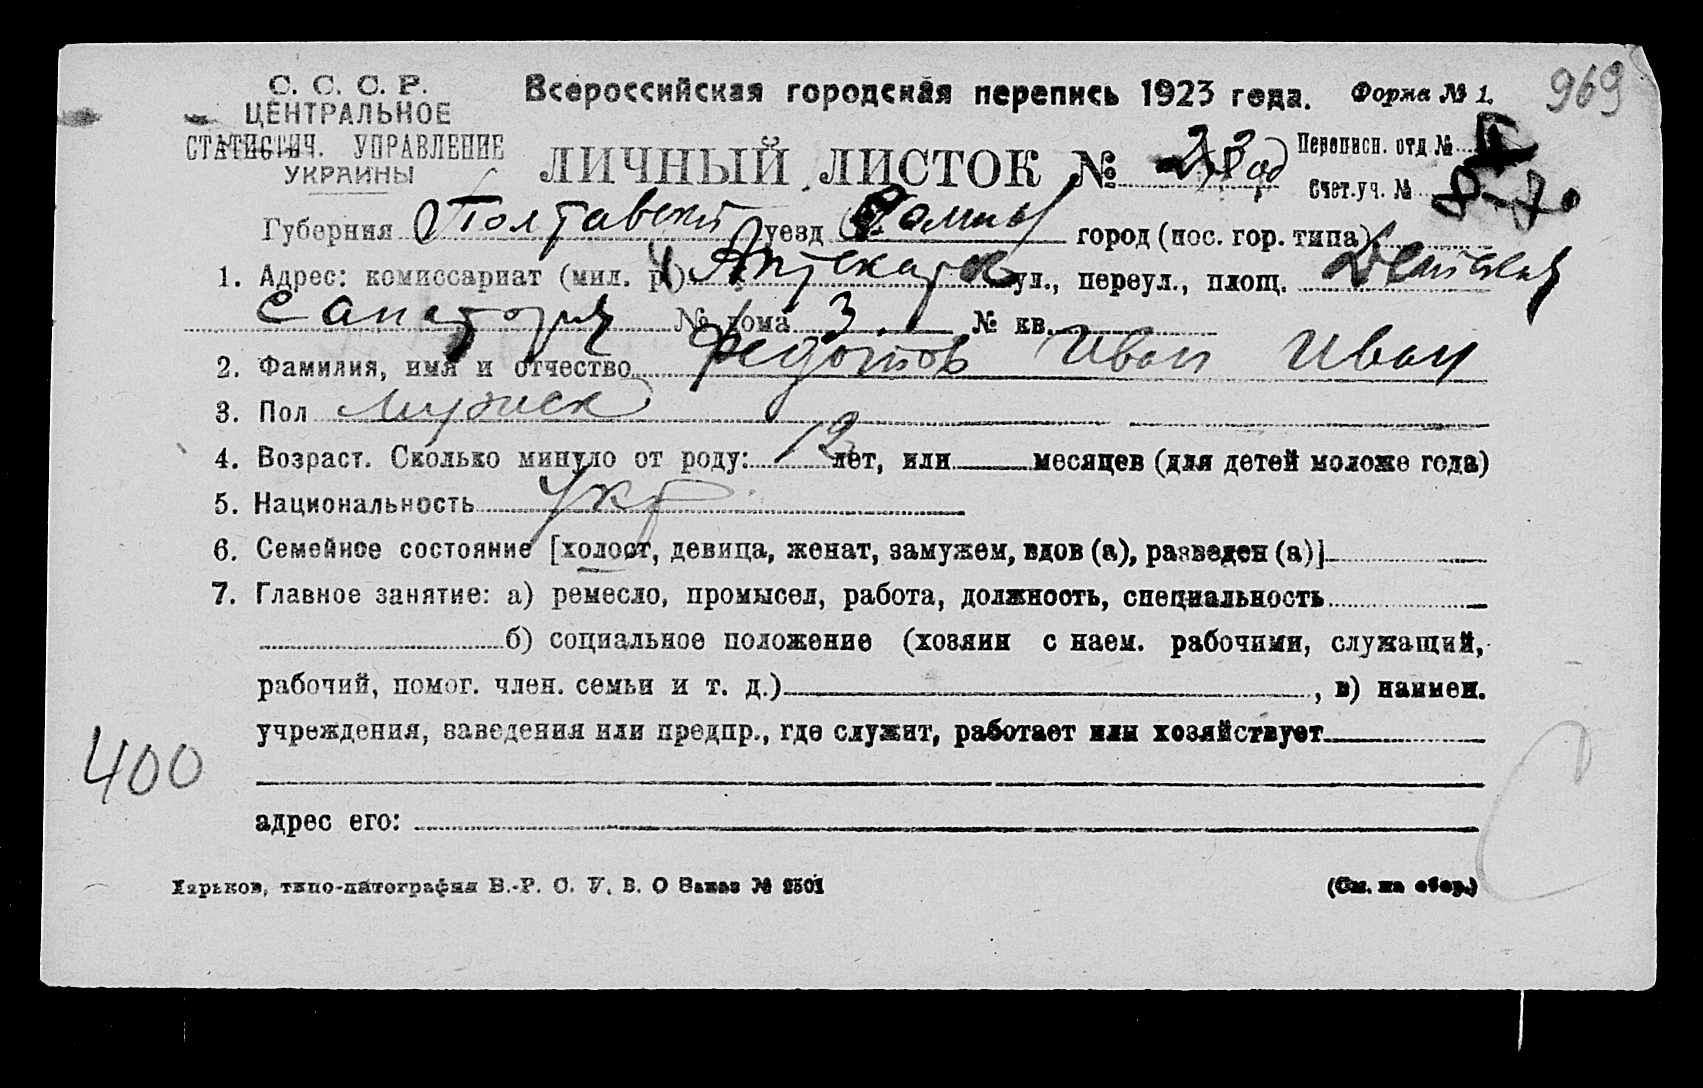 С. С. С. Р.
ЦЕНТРАЛЬНОЕ
СТАТИСТИЧ. УПРАВЛЕНИЕ
УКРАИНЫ
Всероссийская городская перепись 1923 года. Форма № 1.
969
ЛИЧНЫЙ ЛИСТОК №
Переписн. отд №
Счет.уч. №
Губерния Полтавск уезд город (пос. гор. типа)
1. Адрес: комиссариат (мил. р.) ул., переул., площ. Детская
Санатория № дома 3. № кв.
2. Фамилия, имя и отчество Федотов Иван Иван
3. Пол мужск
4. Возраст. Сколько минуло от роду: 12 лет, или месяцев (для детей моложе года)
5. Национальность Укр
6. Семейное состояние [холост, девица, женат, замужем, вдов (а), разведен (а)]
7. Главное занятие: а) ремесло, промысел, работа, должность, специальность
б) социальное положение (хозяин с наем. рабочими, служащий,
рабочий, помог. член. семьи и т. д.) , в) наимен.
учреждения, заведения или предпр., где служит, работает или хозяйствует
400
адрес его:
Харьков, типо-литография В.-Р. С. У. В. О Заказ № 2501
(См. на обор.)